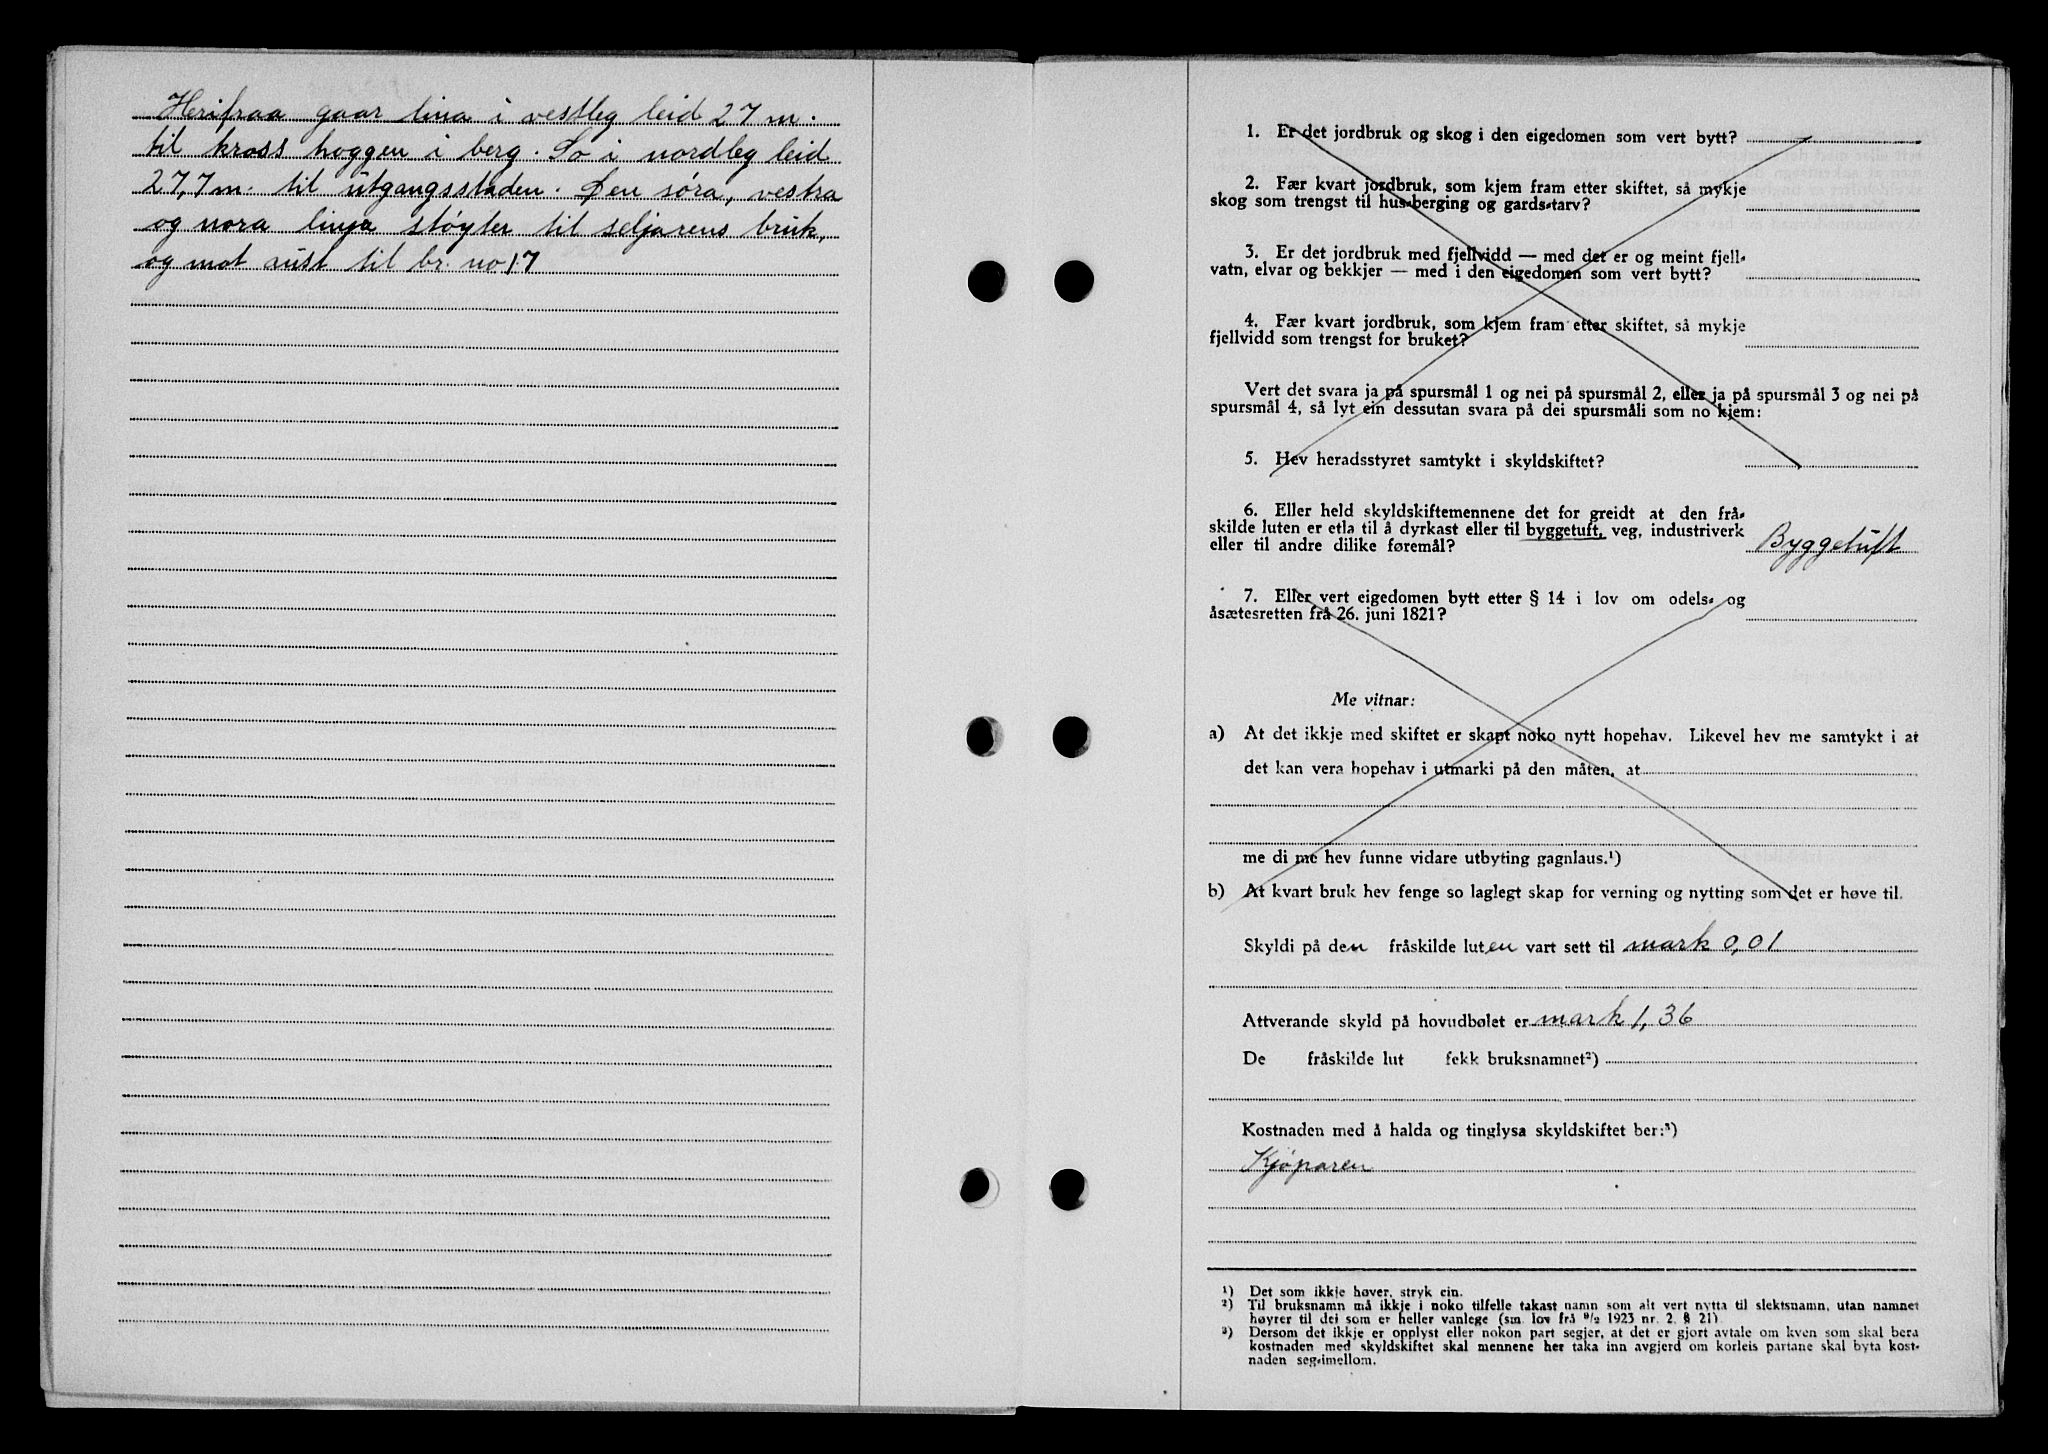 Herifraa gaar lina i vestleg leid 27 m.
til kross hoggen i berg. So i nordleg leid
27,7 m. til utgangsstaden. Den søra, vestra
og nora linja støyter til seljarens bruk,
og mot aust til br. no 17
1. Er det jordbruk og skog i den eigedomen som vert bytt?
2. Fær kvart jordbruk, som kjem fram etter skiftet, så mykje
skog som trengst til hus-berging og gards-tarv?
3. Er det jordbruk med fjellvidd — med det er og meint fjell-
vatn, elvar og bekkjer — med i den eigedomen som vert bytt?
4. Fær kvart jordbruk, som kjem fram etter skiftet, så mykje
fjellvidd som trengst for bruket?
Vert det svara ja på spursmål 1 og nei på spursmål 2, eller ja på spursmål 3 og nei på
spursmål 4, så lyt ein dessutan svara på dei spursmåli som no kjem:
5. Hev heradsstyret samtykt i skyldskiftet?
6. Eller held skyldskiftemennene det for greidt at den frå-
skilde luten er etla til å dyrkast eller til byggetuft, veg, industriverk
eller til andre dilike føremål? Byggetuft
7. Eller vert eigedomen bytt etter § 14 i lov om odels- og
åsætesretten frå 26. juni 1821?
Me vitnar:
a) At det ikkje med skiftet er skapt noko nytt hopehav. Likevel hev me samtykt i at
det kan vera hopehav i utmarki på den måten, at
me di me hev funne vidare utbyting gagnlaus.¹)
b) At kvart bruk hev fenge so laglegt skap for verning og nytting som det er høve til.
Skyldi på den fråskilde luten vart sett til mark 0,01
Attverande skyld på hovudbølet er mark 1,36
De fråskilde lut fekk bruksnamnet²)
Kostnaden med å halda og tinglysa skyldskiftet ber:³)
Kjøparen
¹) Det som ikkje høver, stryk ein.
²) Til bruksnamn må ikkje i noko tilfelle takast namn som alt vert nytta til slektsnamn, utan namnet
høyrer til dei som er heller vanlege (sm. lov frå ⁹/₂ 1923 nr. 2, § 21).
³) Dersom det ikkje er opplyst eller nokon part segjer, at det er gjort avtale om kven som skal bera
kostnaden med skyldskiftet skal mennene her taka inn avgjerd om korleis partane skal byta kost-
naden seg-imellom.